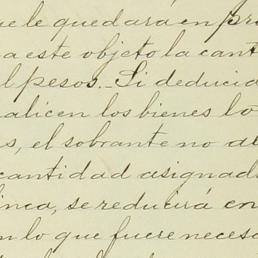 ue le quedará en pro
a este objeto la cant
l pesos. Si deducid
alicen los bienes lo
s, el sobrante no al
cantidad asignad
inca, se reducirá en
n lo que fuere necesa